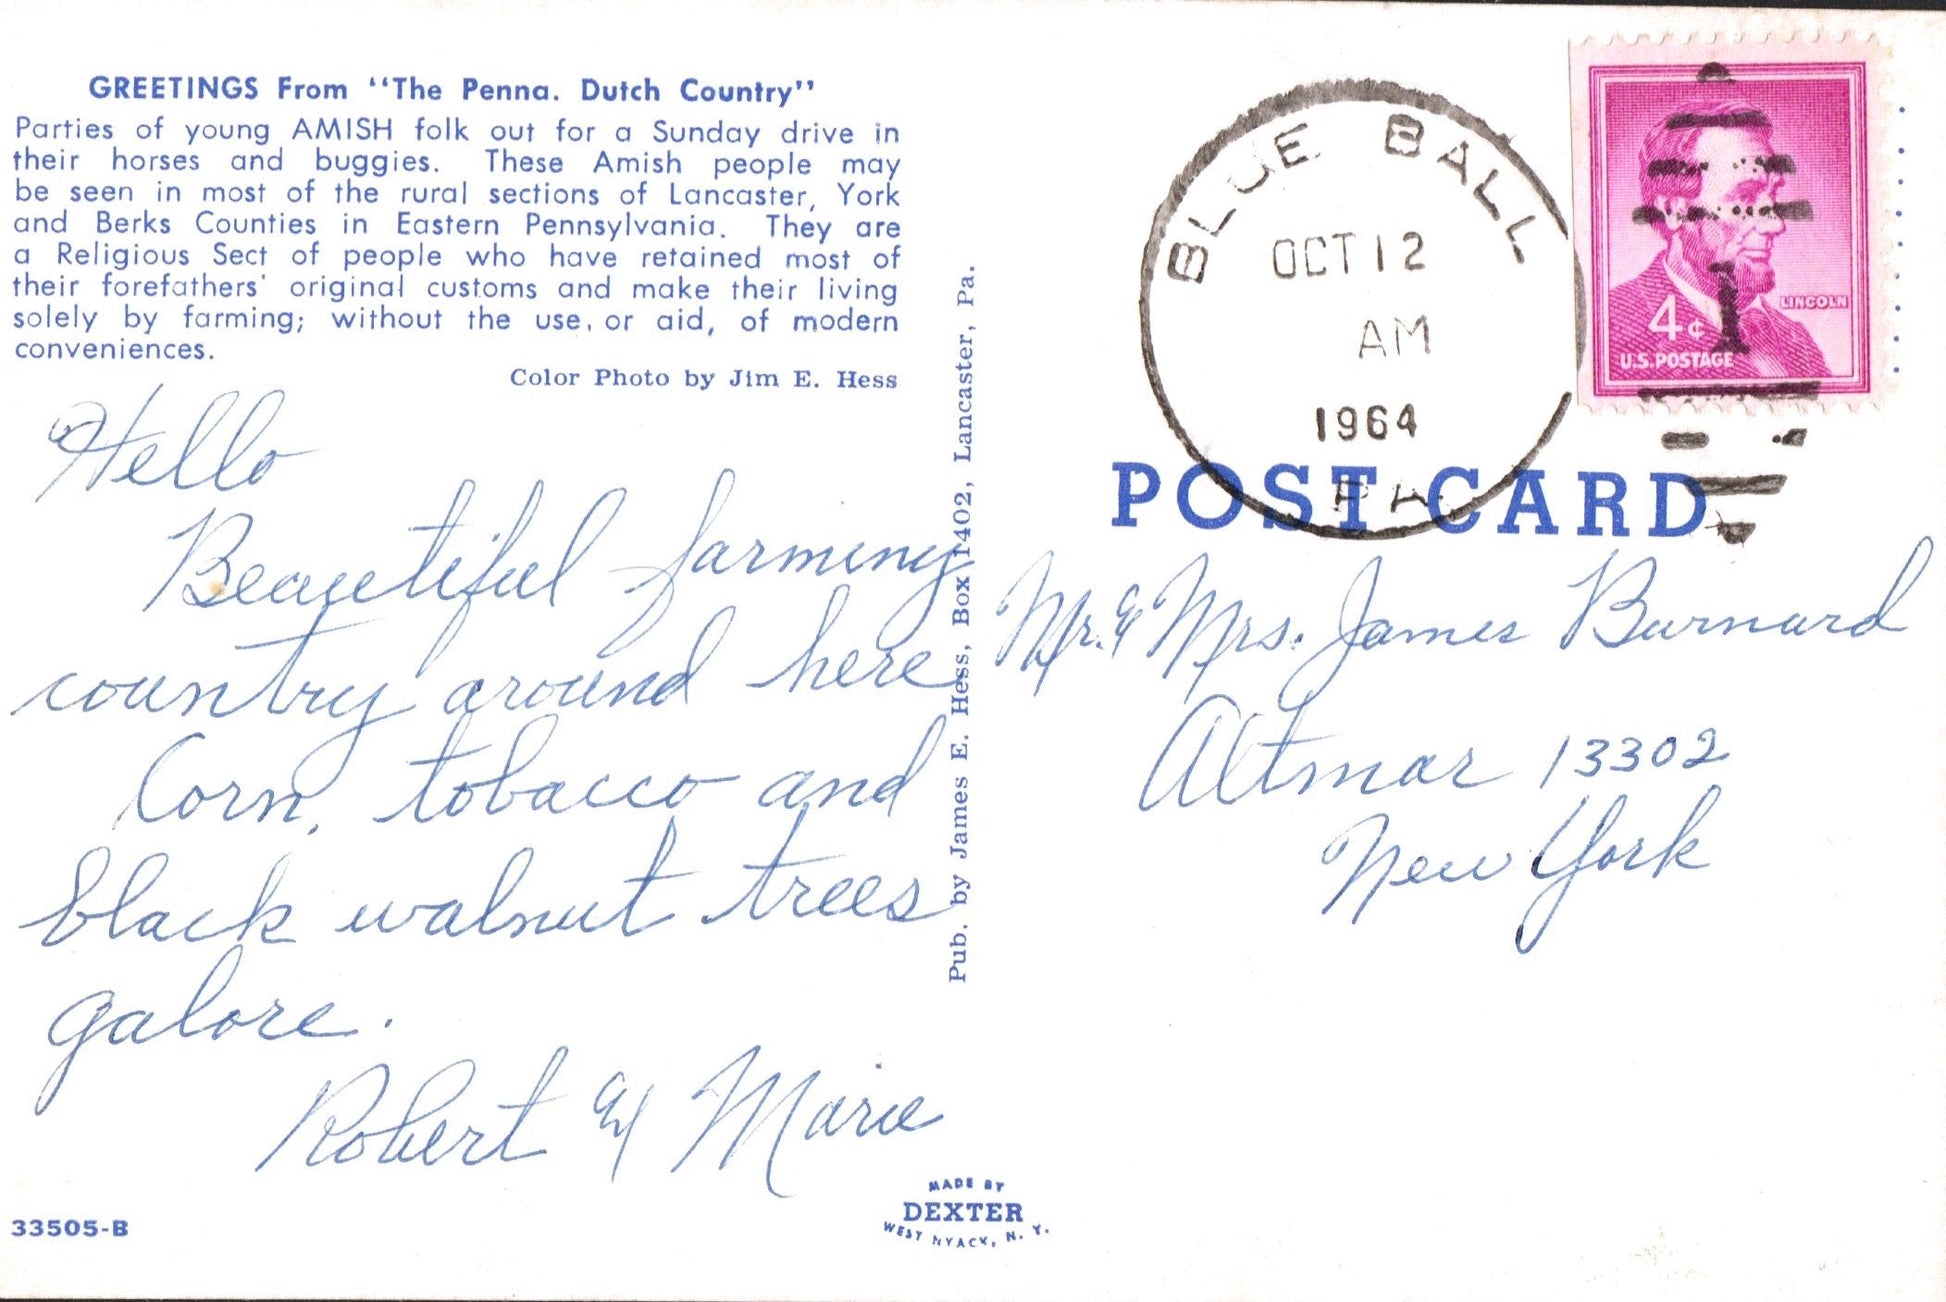 GREETINGS From "The Penna. Dutch Country"
Parties of young AMISH folk out for a Sunday drive in
their horses and buggies. These Amish people may
be seen in most of the rural sections of Lancaster, York
and Berks Counties in Eastern Pennsylvania. They are
a Religious Sect of people who have retained most of
their forefathers' original customs and make their living
solely by farming; without the use, or aid, of modern
conveniences.
Color Photo by Jim E. Hess
Hello
Beautiful farming
country around here
Corn, tobacco and
black walnut trees
galore.
Robert & Marie
33505-B
MADE BY
DEXTER
WEST NYACK, N. Y.
Pub. by James E. Hess, Box 1402, Lancaster, Pa.
BLUE BALL
OCT 12
AM
1964
PA.
LINCOLN
4¢
U.S. POSTAGE
POST CARD
Mr. & Mrs. James Burnard
Altmar 13302
New York